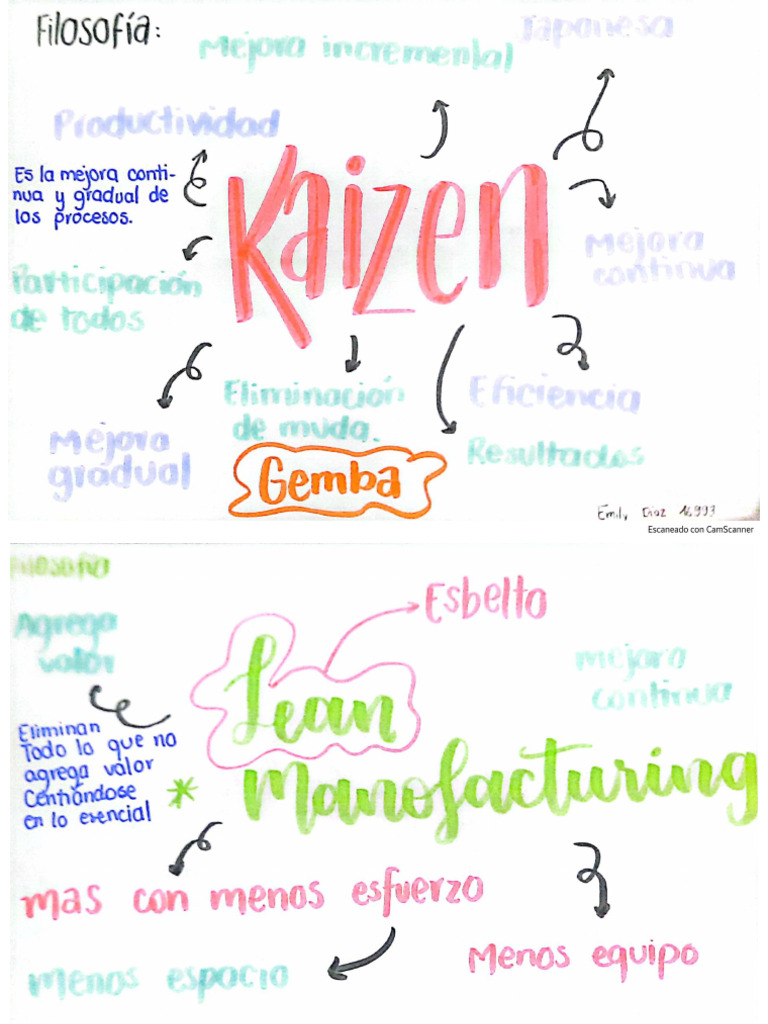 Filosofía:
Mejora incremental
Japonesa
Productividad
Es la mejora conti-
nua y gradual de
los procesos.
Kaizen
Mejora
continua
Participación
de todos
Eliminación
de muda.
Eficiencia
Mejora
gradual
Resultados
Gemba
Emily Diaz 16993
Escaneado con CamScanner
Filosofía
Esbelto
Agrega
valor
mejora
continua
Lean
Manofacturing
Eliminan
Todo lo que no
agrega valor
Centrándose
en lo esencial
mas con menos esfuerzo
Menos equipo
menos espacio